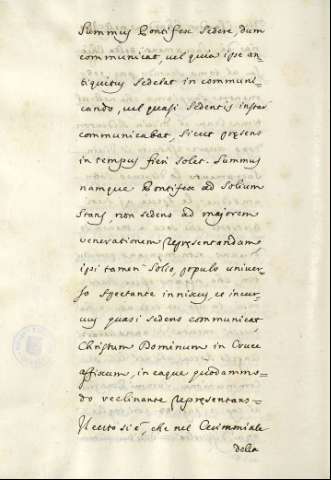 Summus Pontifex sedere, dum
communicat, vel quia ipse an-
tiquitus sedebat in communi-
cando, vel quasi sedentis instar
communicabat, sicut præsens
in tempus fieri solet. Summus
namque Pontifex ad Solium
stans, non sedens ad majorem
venerationem repræsentandam
ipsi tamen Solio, populo univer-
so spectante innixus, et incur-
vus quasi sedens communicat
Christum Dominum in Cruce
affixum, in eaque quodammo-
do reclinante repræsentans=
Il certo si è, che nel Cerimoniale
della